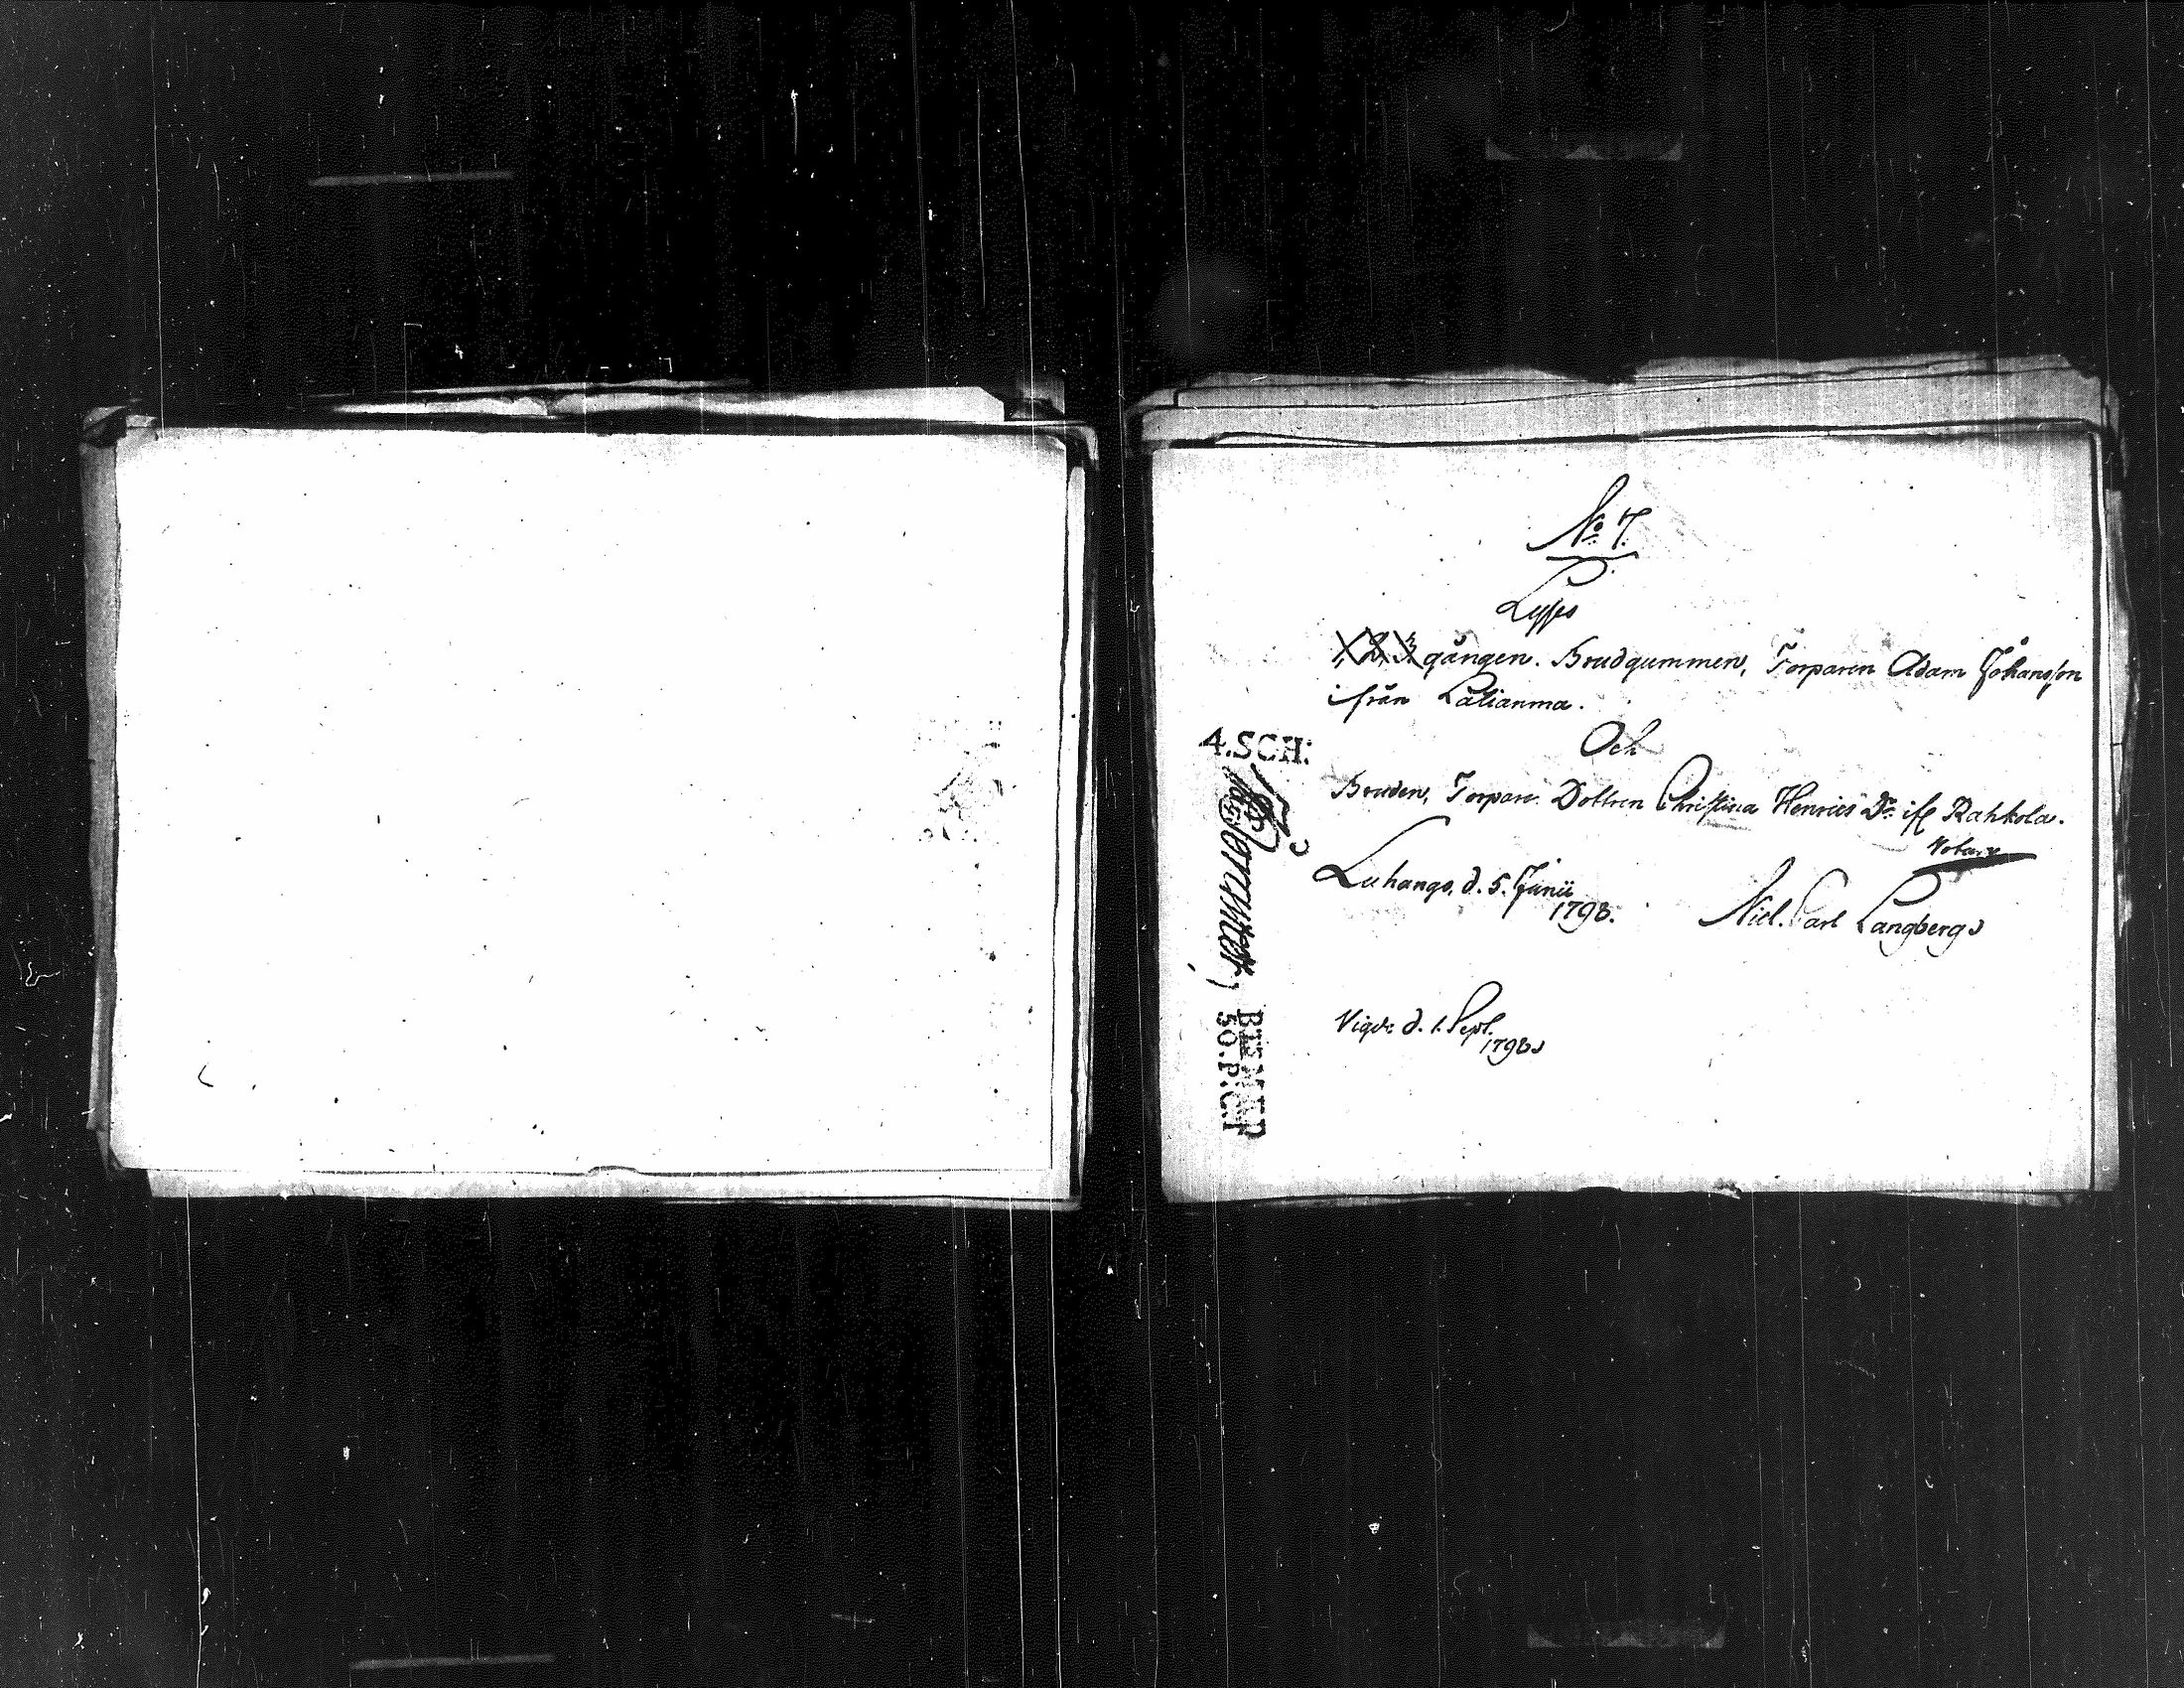 No 7.
Lyses
1. 2. 3. gången. Brudgummen, Torparen Adam Johansson
ifrån Latianma.
Och
Bruden, Torpare Dottren Christina Henrics Dr ifr Rahkola.
Luhango, d. 5. Junii
1798.
Notar.
Nicl. Carl Langberg
Vigde d. 1. Sept.
1798
4.SCH:
50.P:CT